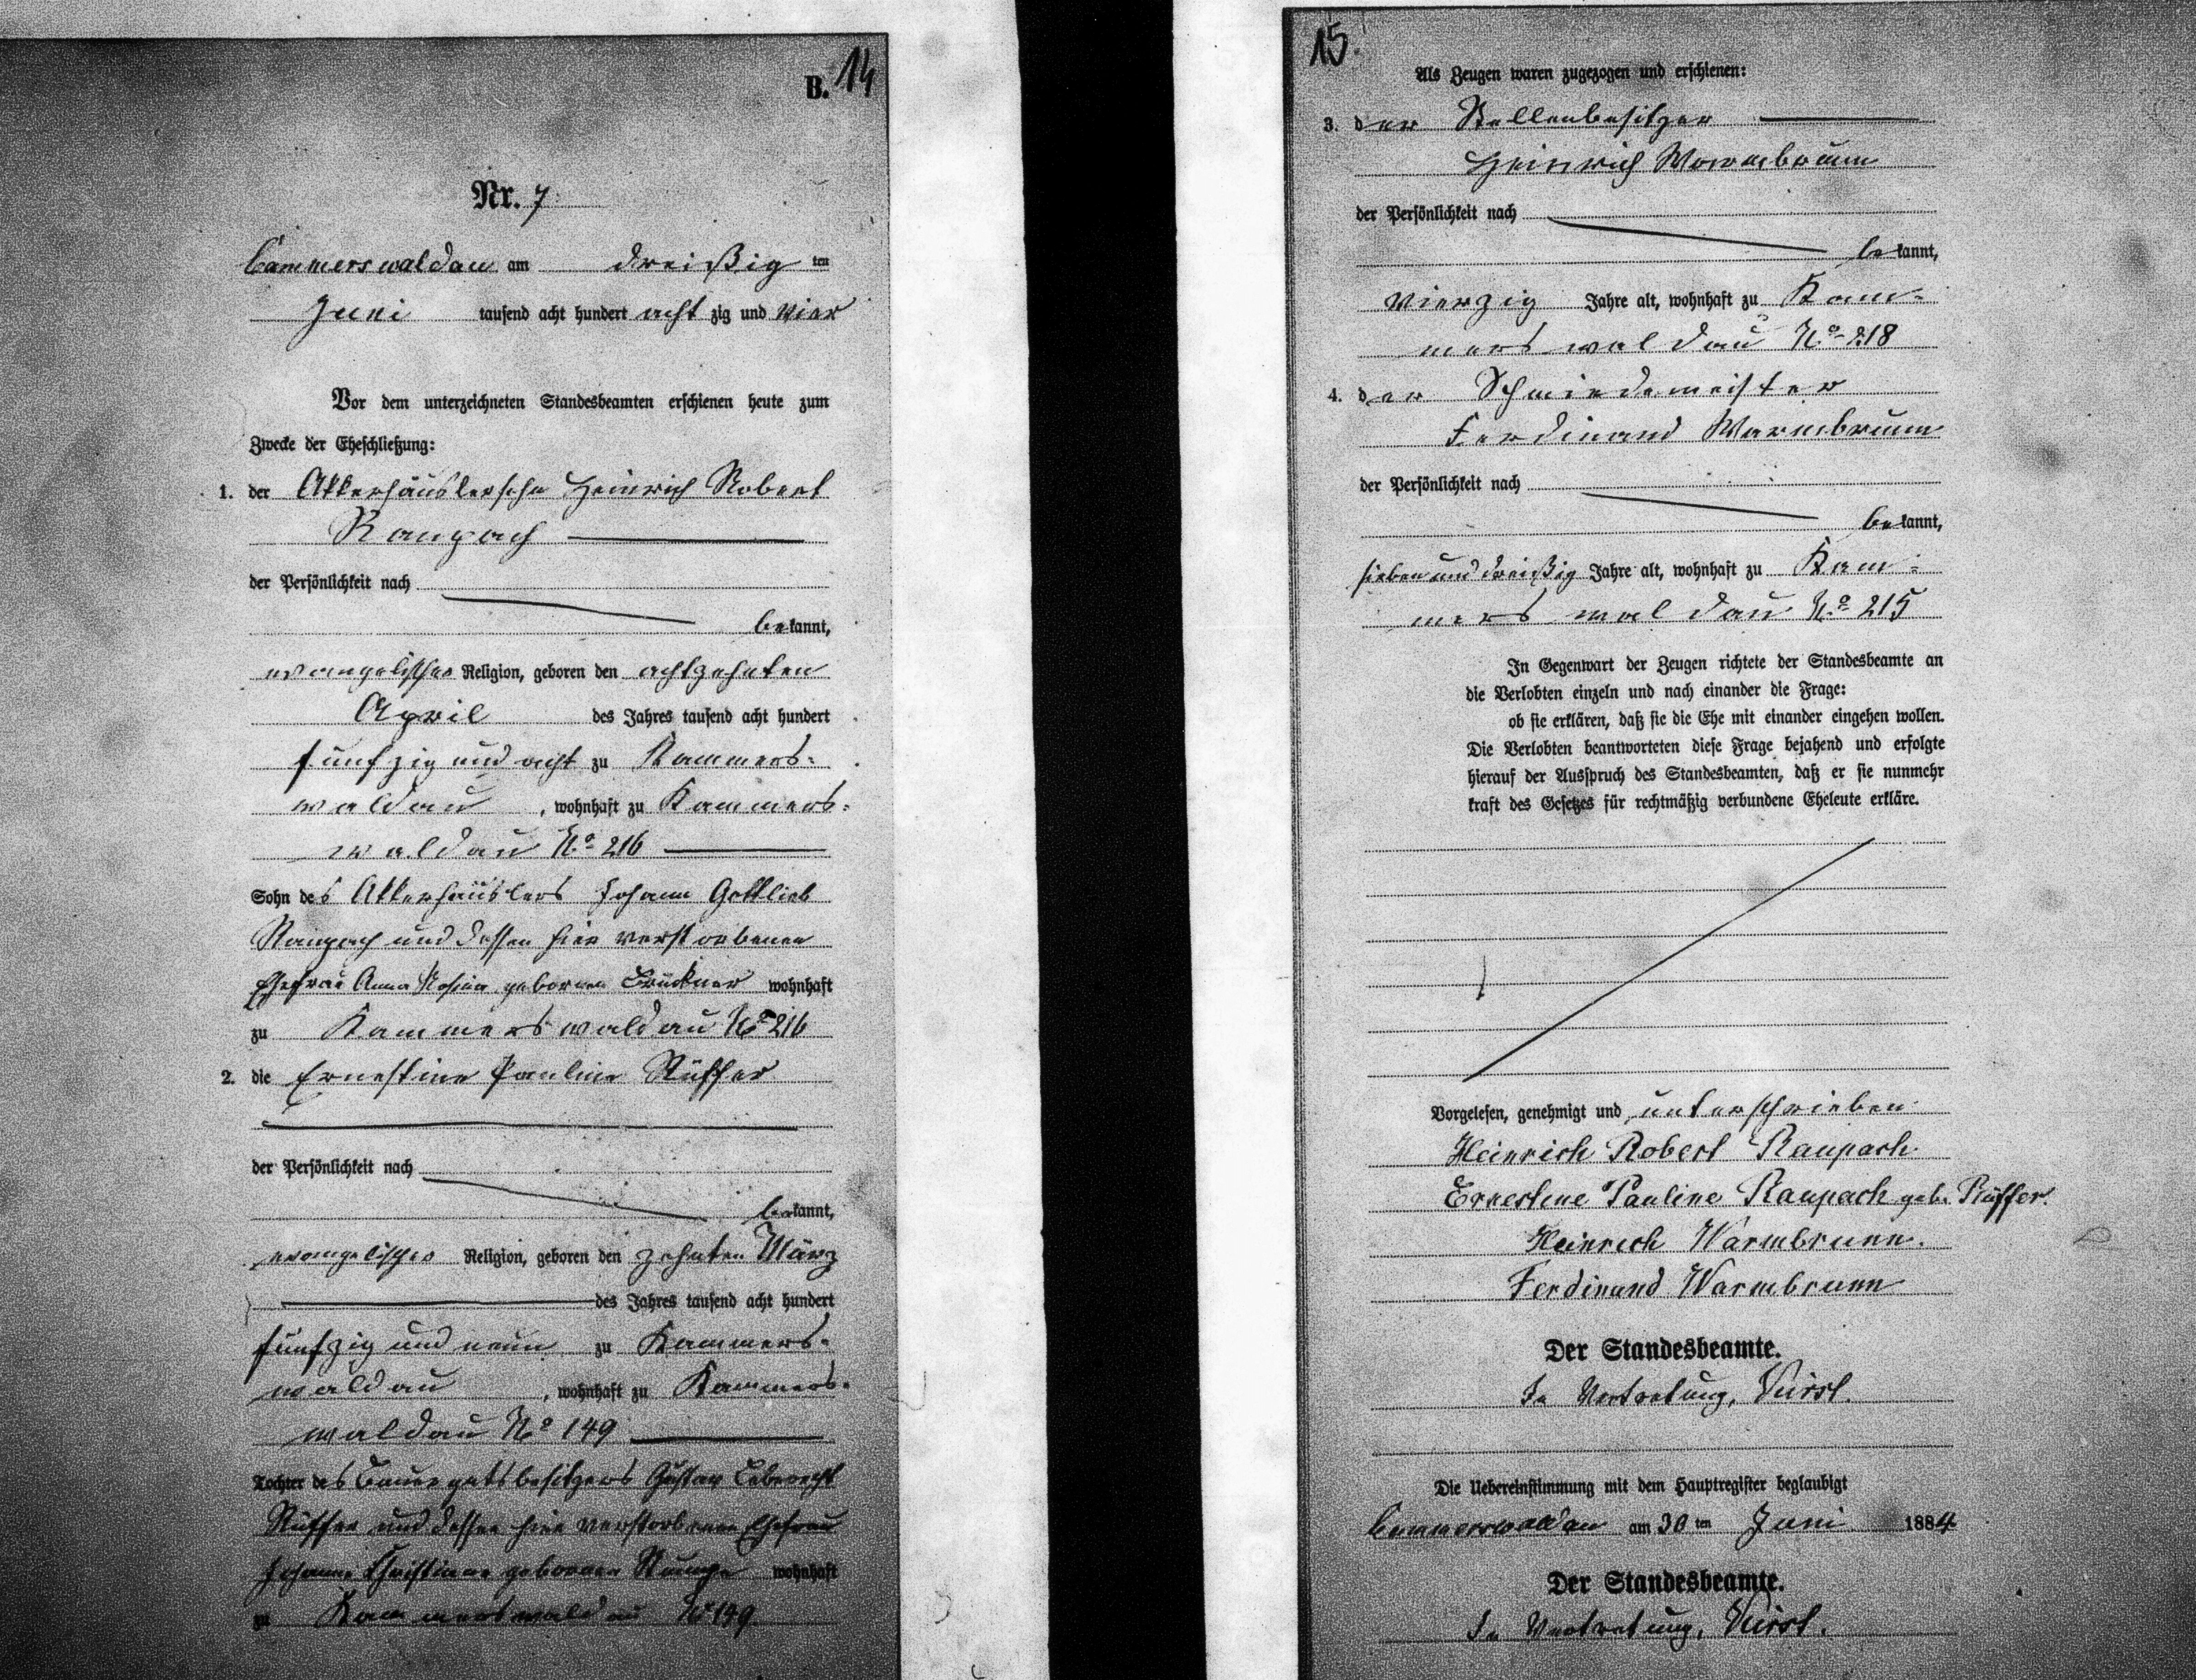 B. 14
Nr. 7
Cammerswaldau am dreißig ten
Juni tausend acht hundert acht zig und vier
Vor dem unterzeichneten Standesbeamten erschienen heute zum
Zwecke der Eheschließung:
1. der Akkerhäuslersohn Heinrich Robert
Raupach
der Persönlichkeit nach
bekannt,
evangelischer Religion, geboren den achtzehnten
April des Jahres tausend acht hundert
fünfzig und acht zu Kammers-
waldau, wohnhaft zu Kammers-
waldau No 216
Sohn des Akkerhäuslers Johann Gottlieb
Raupach und dessen hier verstorbenen
Ehefrau Anna Rosina geborenen Brückner wohnhaft
zu Kammerswaldau No 216
2. die Ernestine Pauline Rüffer
der Persönlichkeit nach
bekannt,
evangelischer Religion, geboren den zehnten März
des Jahres tausend acht hundert
fünfzig und neun zu Kammers-
waldau, wohnhaft zu Kammers-
waldau No 149
Tochter des Bauergutsbesitzers Gustav Leberecht
Rüffer und dessen hier verstorbenen Ehefrau
Johanne Christiane geborenen wohnhaft
zu Kammerswaldau No 149
15.
Als Zeugen waren zugezogen und erschienen:
3. der Stellenbesitzer
Heinrich Warmbrunn
der Persönlichkeit nach
bekannt,
vierzig Jahre alt, wohnhaft zu Kam-
merswaldau No 218
4. der Schmiedemeister
Ferdinand Warmbrunn
der Persönlichkeit nach
bekannt,
sieben und dreißig Jahre alt, wohnhaft zu Kam-
merswaldau No 215
In Gegenwart der Zeugen richtete der Standesbeamte an
die Verlobten einzeln und nach einander die Frage:
ob sie erklären, daß sie die Ehe mit einander eingehen wollen.
Die Verlobten beantworteten diese Frage bejahend und erfolgte
hierauf der Ausspruch des Standesbeamten, daß er sie nunmehr
kraft des Gesetzes für rechtmäßig verbundene Eheleute erkläre.
Vorgelesen, genehmigt und unterschrieben
Heinrich Robert Raupach
Ernestine Pauline Raupach geb. Rüffer.
Heinrich Warmbrunn.
Ferdinand Warmbrunn
Der Standesbeamte.
In Vertretung,
Die Uebereinstimmung mit dem Hauptregister beglaubigt
Cammerswaldau am 30 ten Juni 1884
Der Standesbeamte.
In Vertretung,